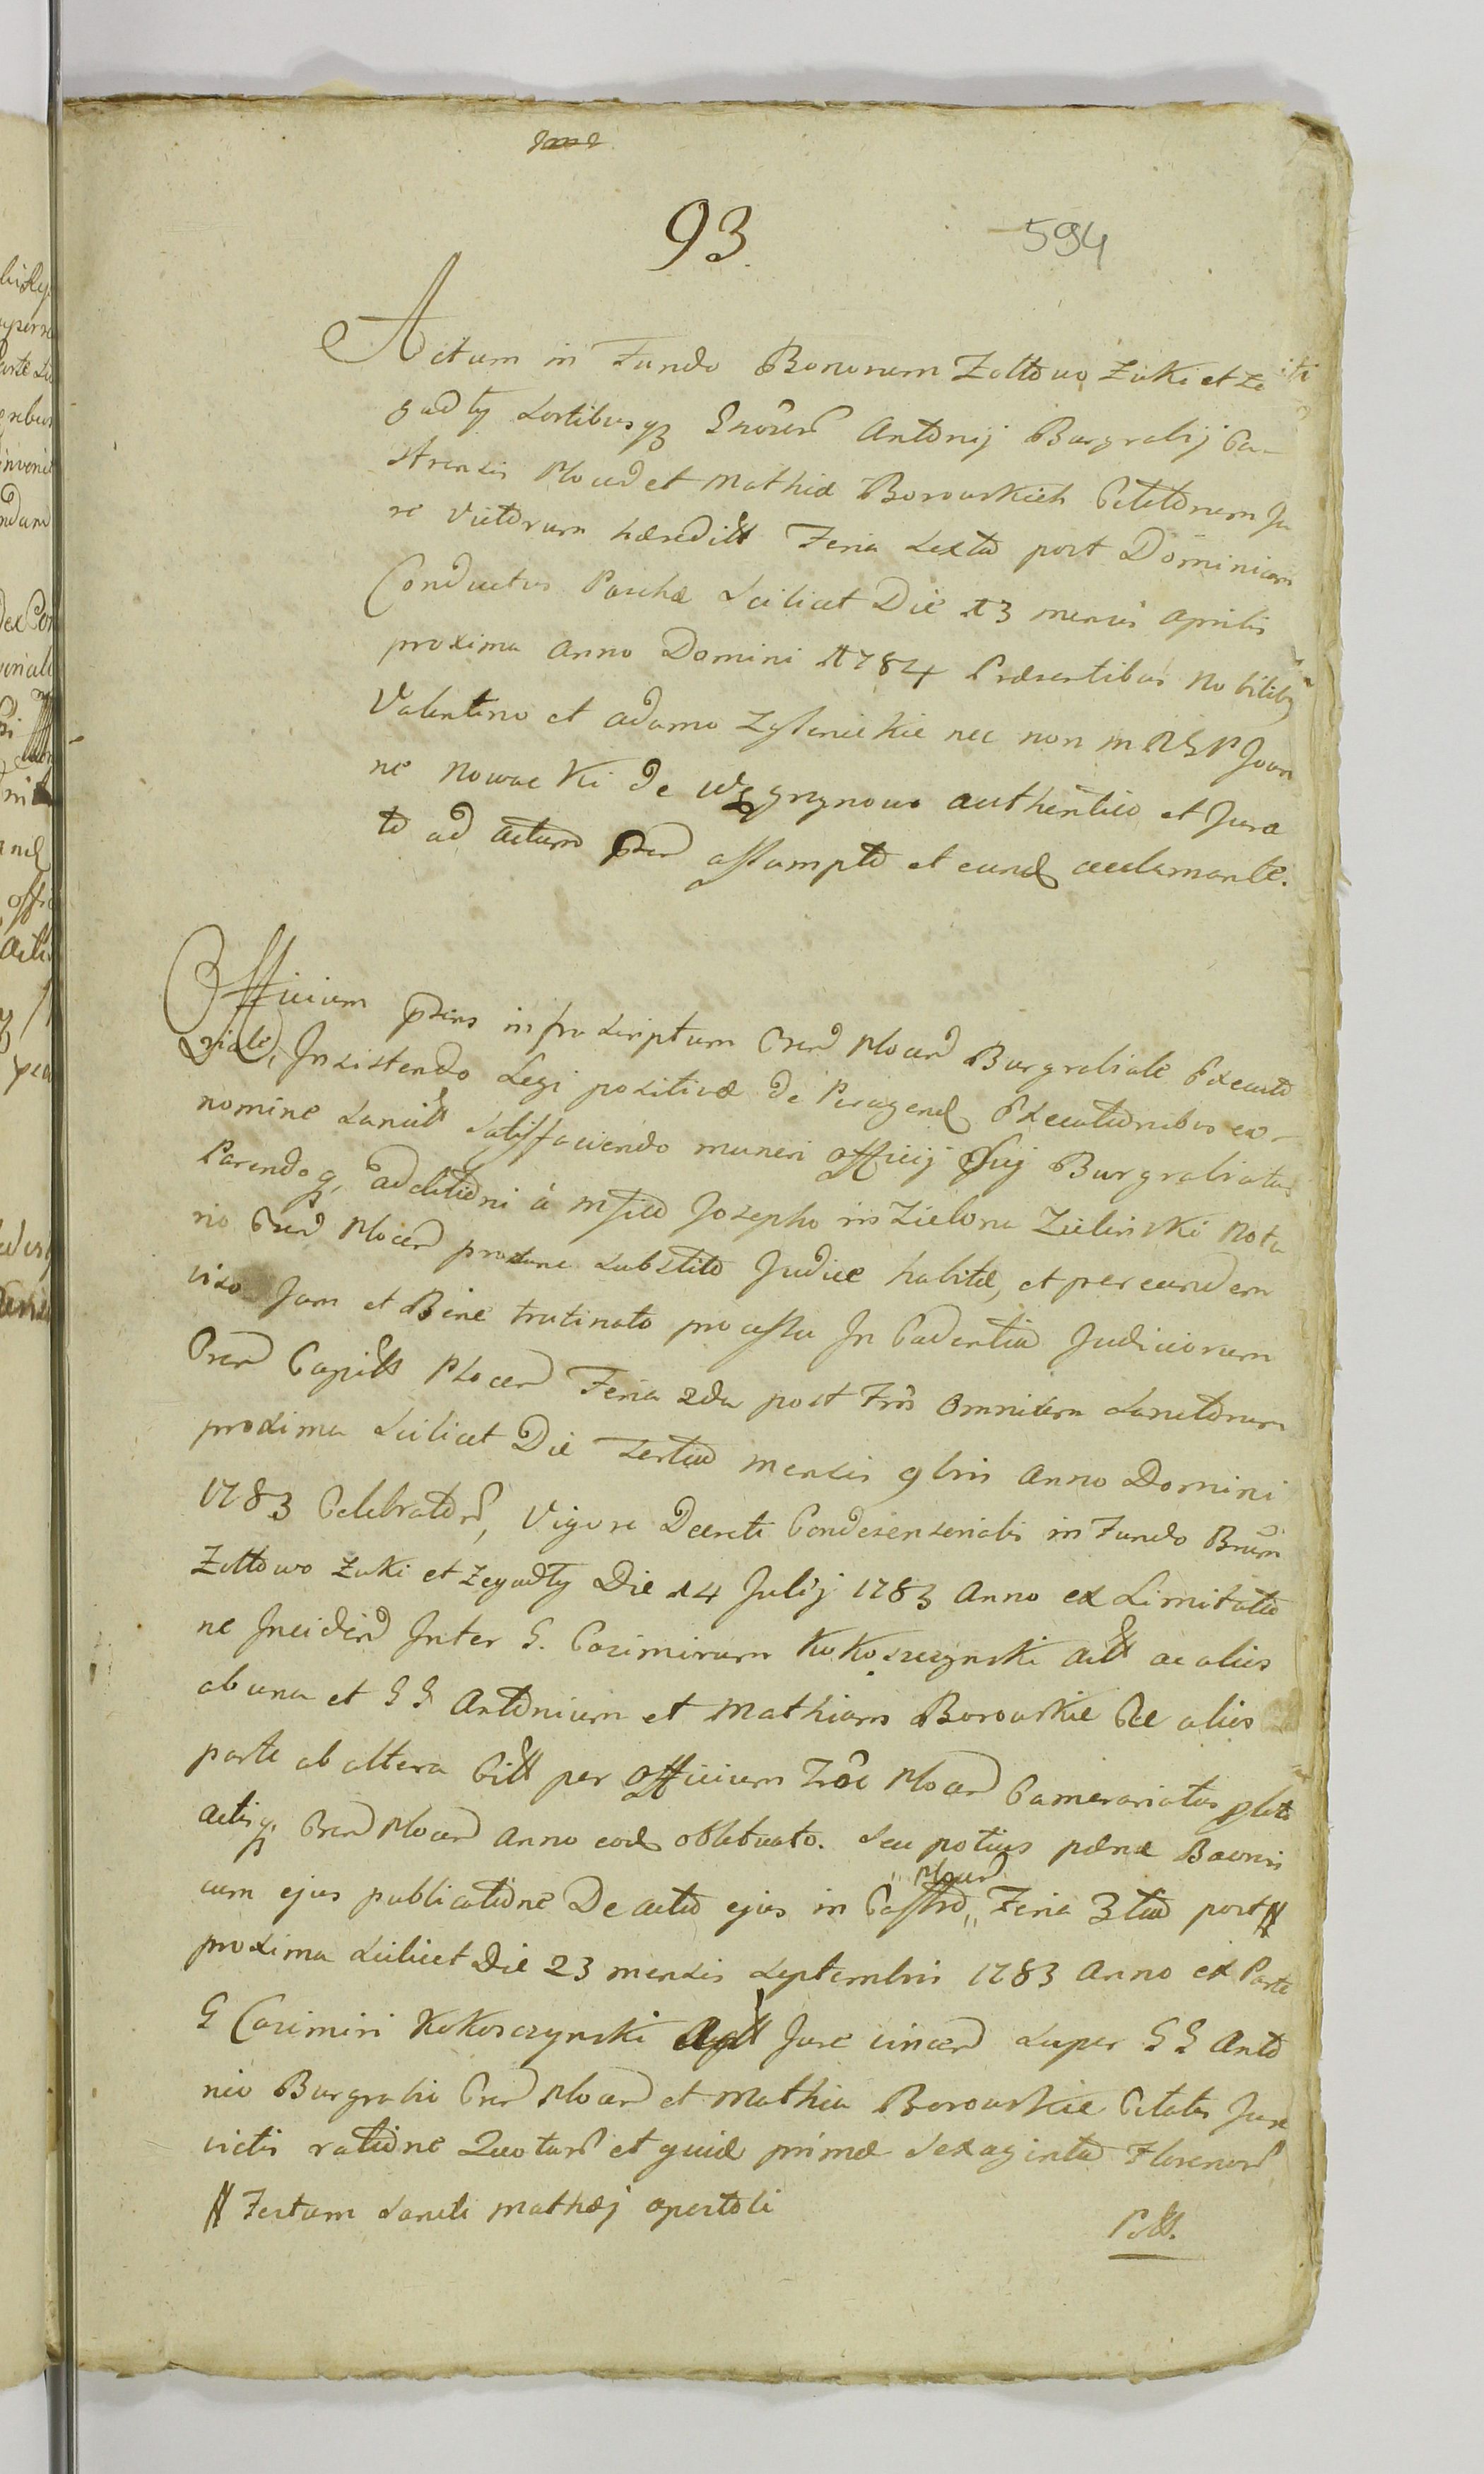 93.
594
Actum in Fundo Bonorum Zołtowo Żuki et Że
gadły Sortibusq Antonij Burgrabij Ca-
strensis Plocen et Mathiæ Borowskich Citatorum Ju
re Victorum hæredit Feria Sexta post Dominicam
Conductus Paschæ Scilicet Die 23 mensis Aprilis
proxima Anno Domini 1784 Præsentibus Nobilibq
Valentino et Adamo nec non Joan
ne Nowacki de authentico et Jura
to ad actum assumpto et eund acclamante.
Officium pñens infrascriptum Cren Plocen Burgrabiale Executo
riale, Insistendo Legi positivæ de Peragend Executionibus eo-
nomine Sancitt Satisfaciendo muneri Officij Sui Burgrabiatus
Parendoq, adcitationi à Mfico Josepho in Zielona Zielinski Nota
rio Cren Plocen substito Judice habitæ, et per eundem
viso Jam et Bene trutinato processu In Cadentia Judiciorum
Cren Capitt Plocen Feria 2da post Frus Omnium Sanctorum
proxima Scilicet Die tertia Mensis 9bris Anno Domini
1783 Celebrator, Vigore Decreti Condescensorialis in Fundo Bnum
Zołtowo Żuki et Żegadły Die 14 Julij 1783 Anno ex Limitatio
ne Inciden Inter G. Casimirum Kokoszczynski Act ac alios
ab una et GG Antonium et Mathiam Borowskie Cc alios
parte ab altera Citt per Officium Plocen Camerariatus
actisq. Cren Plocen Anno eod oblatuato. Seu potius pænæ Bannis
cum ejus publicatione De acto ejus in Castro „Plocen„ Feria 3tia post #
proxima Scilicet Die 23 mensis Septembris 1783 Anno ex Parte
G Casimiri Kokoszczynski Jure vincen super GG Anto
nio Burgrabio Cren Plocen et Mathia Borowskie Citatis Jure
victis ratione Quotar et quidē primæ Sexaginta Florenor
# Festum Sancti Mathæj Apostoli